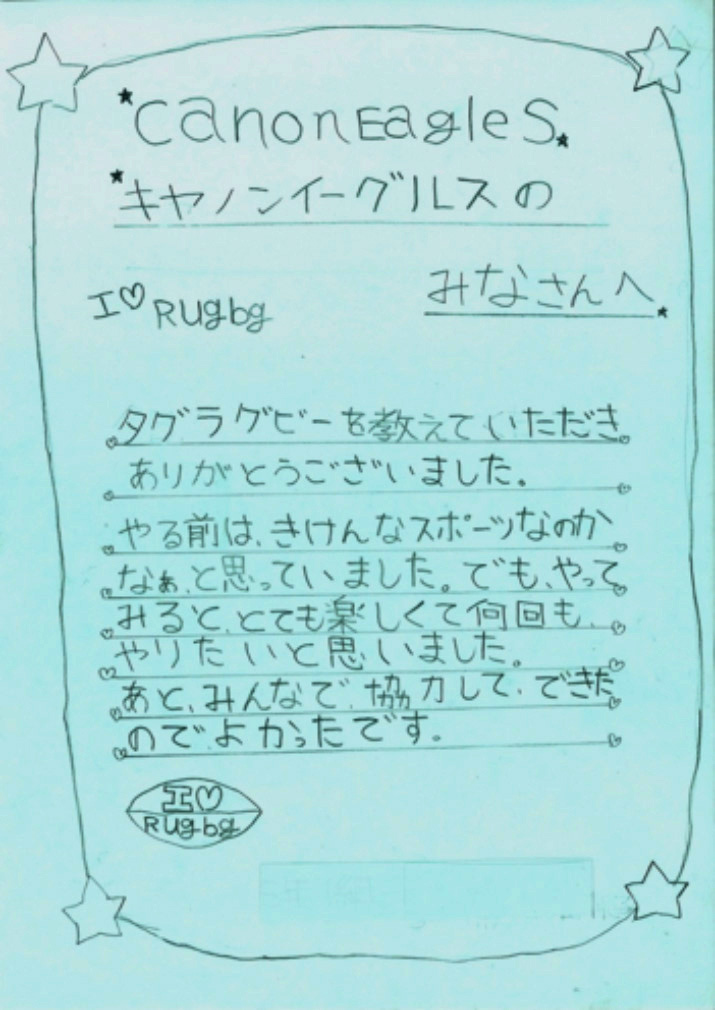 Canon EagleS
キヤノンイーグルスの
みなさんへ
I♡Rugbg
タグラグビーを教えていただき
ありがとうございました。
やる前は、きけんなスポーツなのか
なぁ、と思っていました。でも、やって
みると、とても楽しくて何回も、
やりたいと思いました。
あと、みんなで、協力して、できた
のでよかったです。
I♡
Rugbg